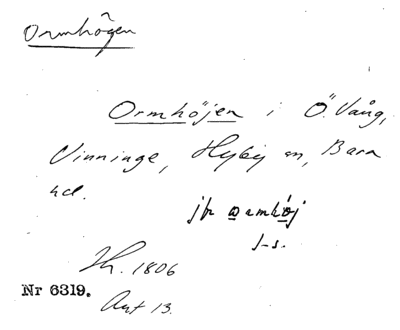 Ormhögen
Ormhöjen i Ö. Vång,
Vinninge, Hyby sn, Bara
hd.
jfr ormhöj
J-s.
Lh. 1806
Nr 6319.
Avt 13.